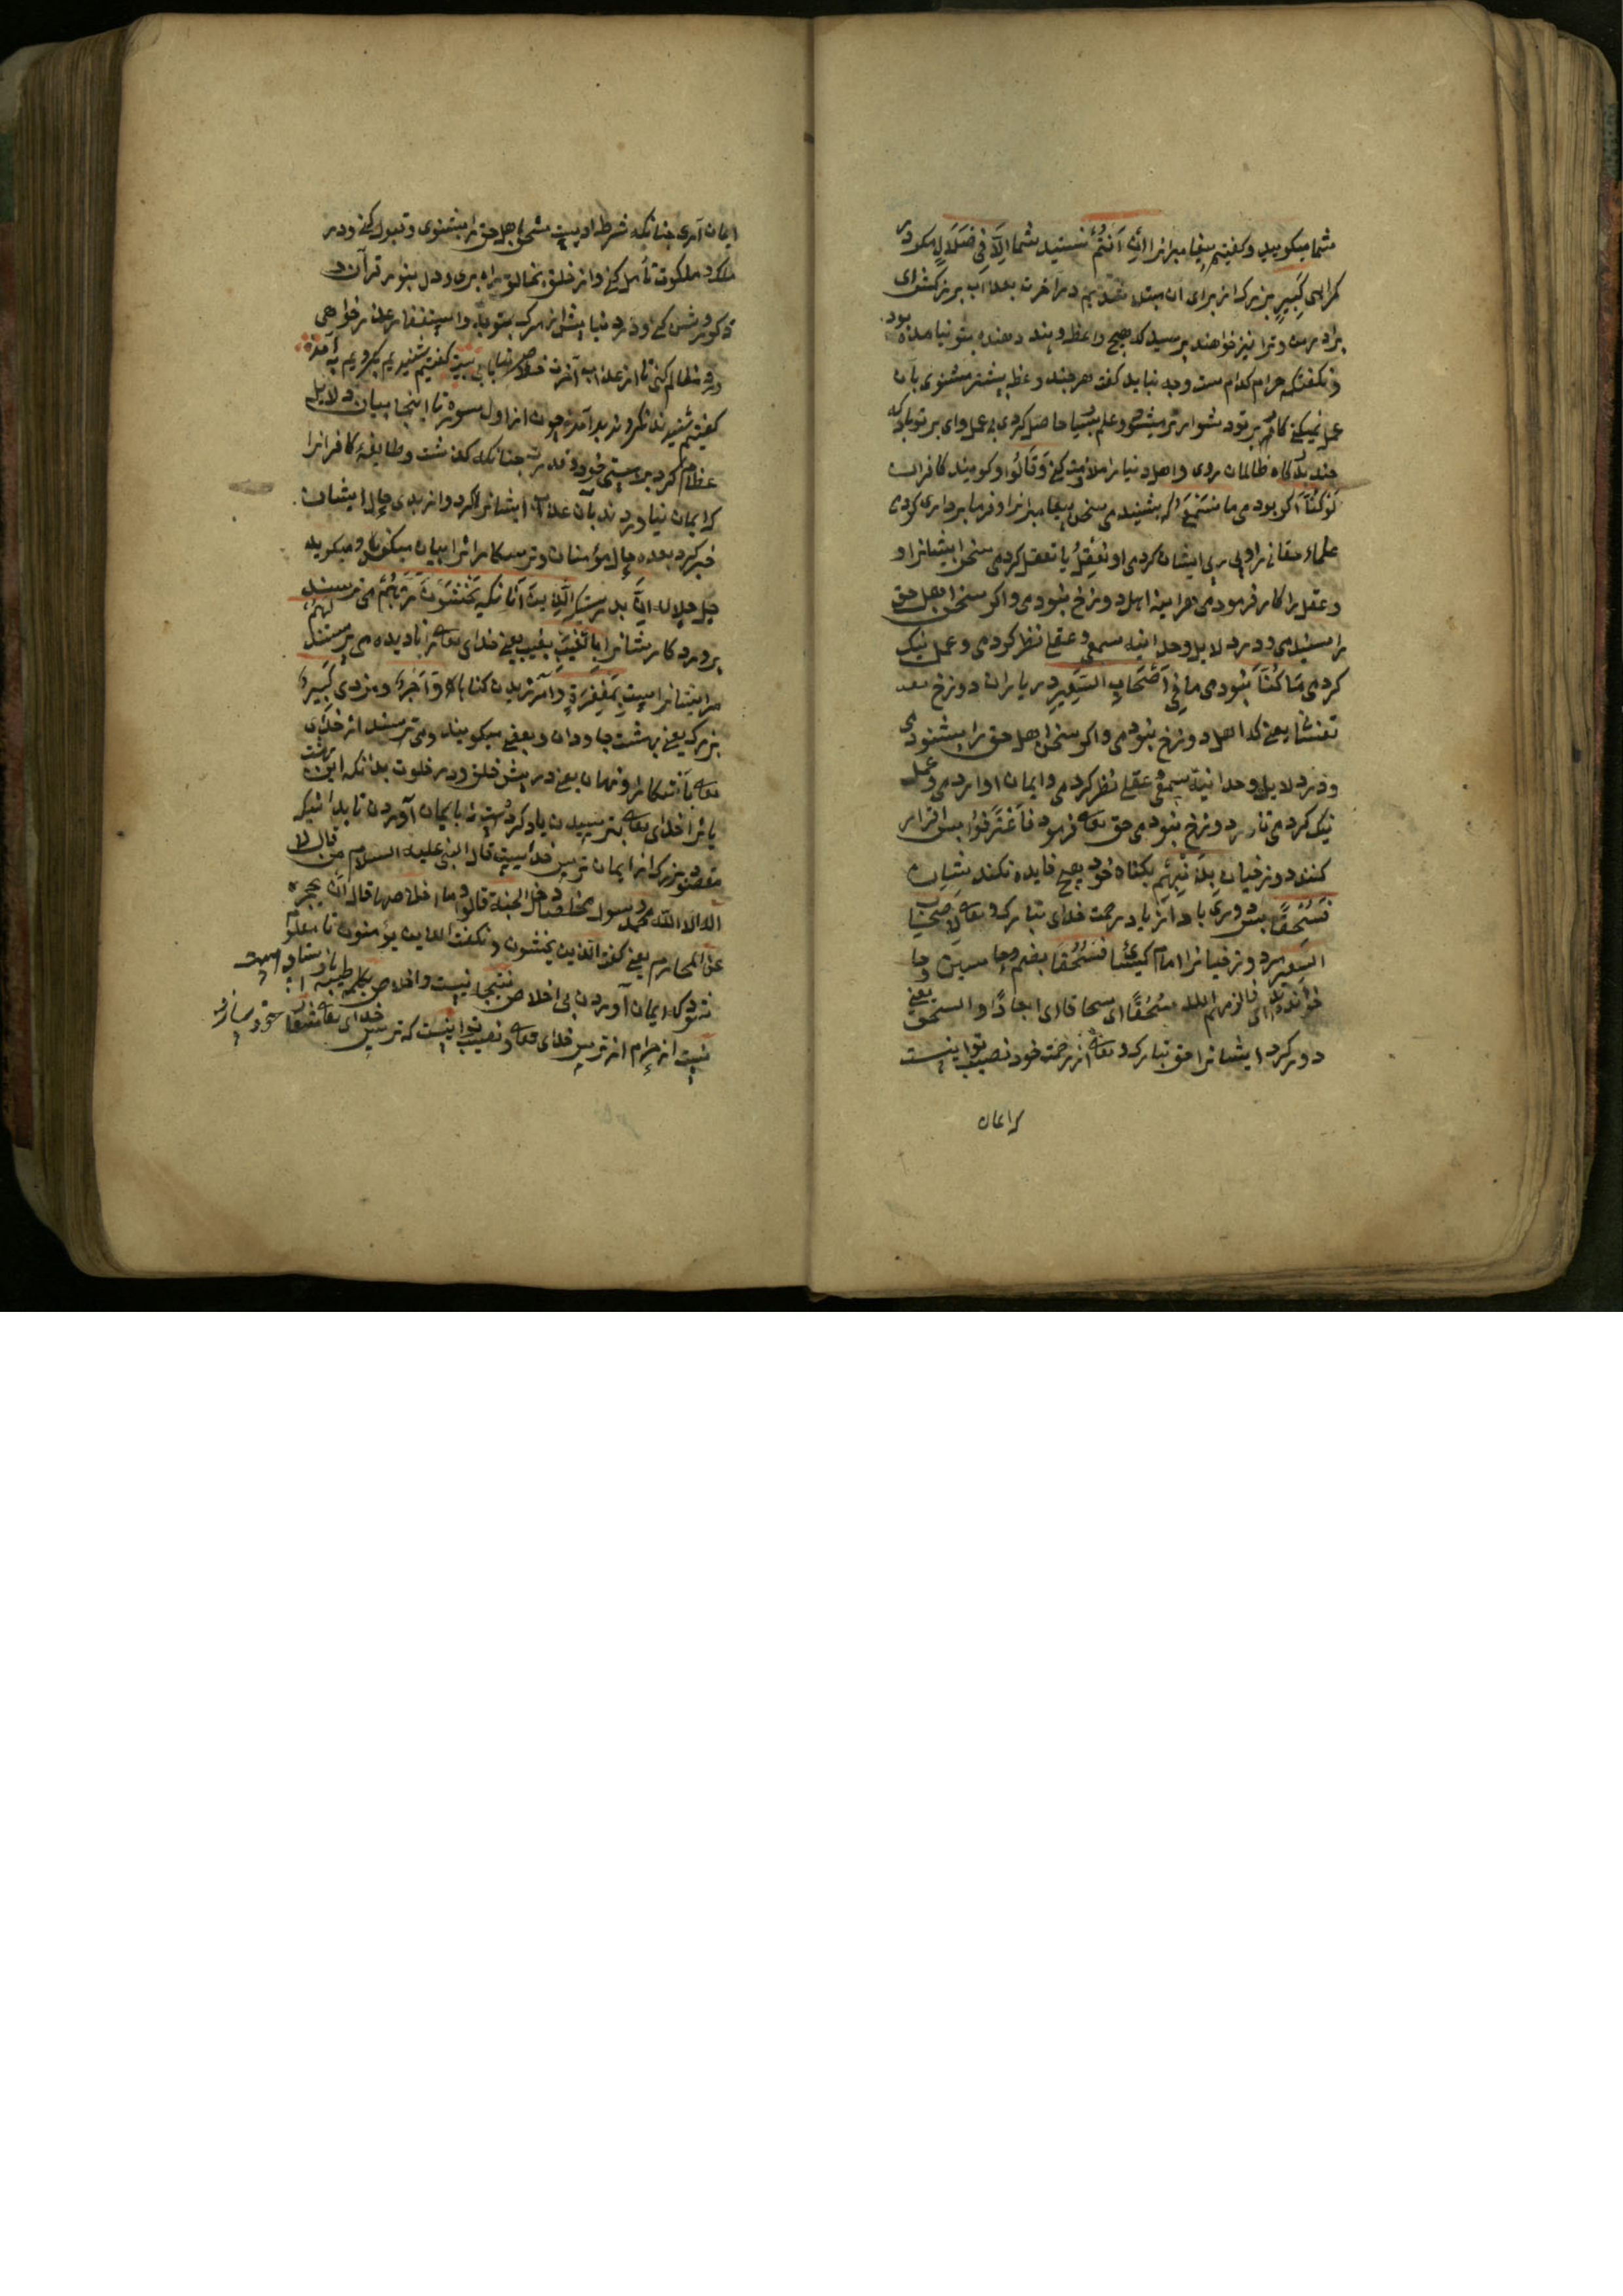 شما میکویید و کفتیم پیغامبرانرا اِن اَنتُم نیستید شما اِلّا فِی ضَلَالٍ مکر در
کمراهی کَبِیرٍ بزرک از برای آن مبتلا شدیم در آخرت بعذاب بزرک
برادر من ترا نیز خواهند پرسید که هیچ واعظ و پند دهنده بتو نیامده بود
و نکفت که حرام کدام است وچه نباید کفت هرچند وعظ بیشتر میشنوی بآن
عمل نمیکنی کار بر تو دشوارتر میشود و علم بسیار حاصل کردی بی عمل وای بر تو باد که
ظالمان روی و اهل دنیا را ملازمت کنی وَقَالُوا و کویند کافران
لَو کُنَّا اکر بودمی ما نَسمَعُ که بشنیدمی سخن پیغامبرانرا و فرمابرداری کردمی
علماء حقانی را و پی روی ایشان کردمی اَو نَعقِلُ یا تعقل کردمی سخن ایشانرا و
و عقل را کار فرمودمی هرآینه اهل دوزخ نبودمی و اکر سخن اهل حق
را مسنیدمی و در دلایل وحدانیة سمعی و عقلی نظر کردمی و عمل نیک
کردمی مَا کُنَّا نبودمی ما فِی اَصحَابِ السَّعِیرِ در یاران دوزخ
یعنی که اهل دوزخ نبودمی و اکر سخن اهل حق را بشنودمی
و در دلایل وحدانیة سمعی و عقلی نظر کردمی و ایمان آوردمی و عمل
نیک کردمی تا در دوزخ نبودمی حق تعالی فرمود فَاعتَرَفُوا پس اقرار
کنند دوزخیان بِذَنبِهِم بکناه خود هیچ فایده نکند بشان
فَسُحقًا پس دوری باد از یاد رحمت خدای تبارک و تعالی لِاَصحَابِ
السَّعِیرِ مر دوزخیانرا امام کسائی فَسُحُقًا بضم حا
خوانده ای فالزمهم الله سُحُقًا ای سحاقا ای ابعادًا و السحق یعنی
دور کرد ایشانرا حق تبارک و تعالی از رحمت خود نصیب تو اینست
که ایمان
ایمان آری چنانکه شرط اوست سخن اهل حق را بشنوی و قبول کنی و در
ملک و ملکوت تأمل کنی و از خلق بخالق راه بری و دل بنور قرآن
و روشن کنی و در دنیا پیش از مرک بتوبه و استغفار عذر خواهی
و رد مظالم کنی تا از عذاب آخرت خلاص یابی بیت کفتیم شنیدیم بکرویم به آمد
کفتیم شنیدند نکرویدند بد آمد چون از اول سوره تا اینجا بیان دلایل
عظام کرد بر هستی خود و قدرت چنانکه کذشت و طایفۀ کافرانرا
که ایمان نیاوردند بآن عذاب ایشانرا ذکر کرد و از بدی حال ایشان
خبر کرد بعده حال مؤمنان و ترسکارانرا بیان میکند و میکوید
جل جلاله اِنَّ بدرستیکه الَّذِینَ آنانکه یَخشَونَ رَبَّهُم می ترسند
پروردکارشانرا بِالغَیبِ بغیب یعنی خدای تعالی را نادیده می پرستند لَهُم
مر ایشانراست مَغفِرَةٌ و آمرزیدن کناها وَاَجرٌ و مزدی کَبِیرٌ
بزرک یعنی بهشت جاودان و بعضی میکویند و می ترسند از خدای
تعالی بآشکارا و نهان یعنی در پیش خلق و در خلوت بدانکه این بهشت
یانرا خدای تعالی بترسیدن یاد کرده است نه بایمان آوردن تا بدانیکه
مقصود بزرک از ایمان ترس خداست قال النبی علیه السلام من قال لا
اله الا الله محمد رسول الله مخلصا دخل الجنة قالوا وما اخلاصها قال ان یحجزه
عن المحارم یعنی کفت الذین یخشون و نکفت الذین یؤمنون تا معلوم
شود که ایمان آوردن بی اخلاص نتیجه نیست و اخلاص بکلمه طیبه باز ستادن
نیت از حرام از ترس خدای تعالی و نصیب تو اینست که ترس خدای تعالی شعار خود سازد